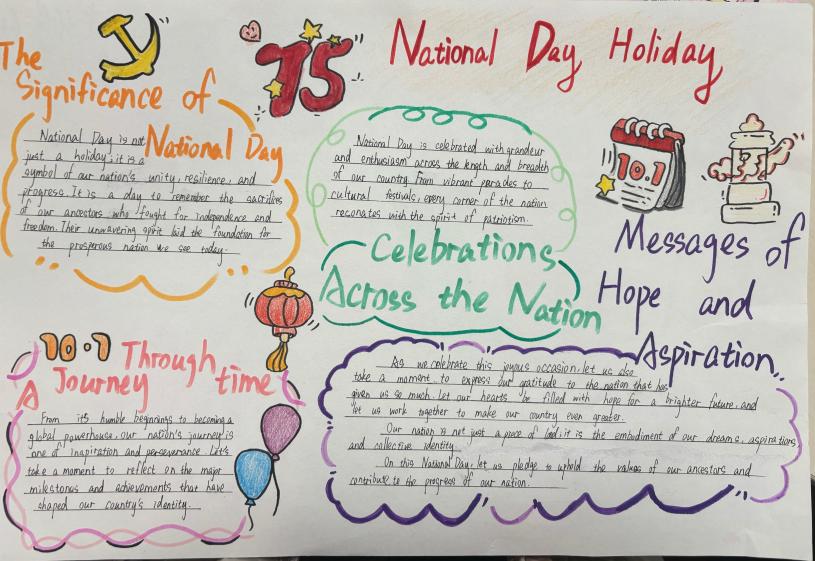 75
National Day Holiday
The
Significance of
National Day
National Day is not
just a holiday; it is a
symbol of our nation's unity, resilience, and
progress. It is a day to remember the sacrifices
of our ancestors who fought for independence and
freedom. Their unwavering spirit laid the foundation for
the prosperous nation we see today.
National Day is celebrated with grandeur
and enthusiasm across the length and breadth
of our country. From vibrant parades to
cultural festivals, every corner of the nation
reconates with the spirit of patriotism.
Celebrations
Across the Nation
10.1
Messages of
Hope and
Aspiration
As we celebrate this joyous occasion, let us also
take a moment to express our gratitude to the nation that has
given us so much. Let our hearts be filled with hope for a brighter future, and
let us work together to make our country even greater.
Our nation is not just a piece of land; it is the embodiment of our dreams, aspirations
and collective identity.
On this National Day, let us pledge to uphold the values of our ancestors and
contribute to the progress of our nation.
10.1
A Journey Through time
From it's humble beginnings to becoming a
global powerhouse, our nation's journey is
one of inspiration and perseverance. Let's
take a moment to reflect on the major
milestones and achievements that have
shaped our country's identity.